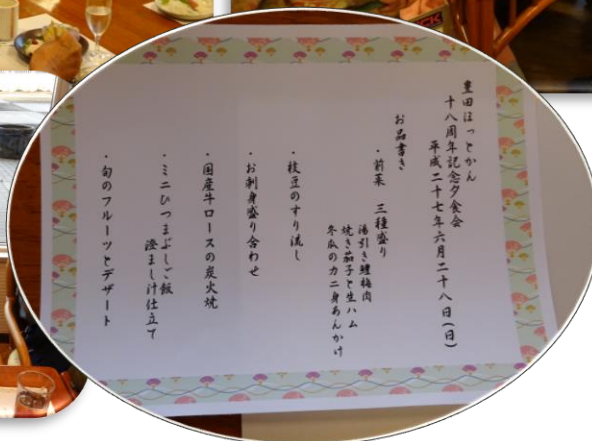 豊田ほっとかん
十八周年記念夕食会
平成二十七年六月二十八日(日)
お品書き
・前菜 三種盛り
湯引き鱧梅肉
焼き茄子と生ハム
冬瓜のカニ身あんかけ
・枝豆のすり流し
・お刺身盛り合わせ
・国産牛ロースの炭火焼
・ミニひつまぶしご飯
澄まし汁仕立て
・旬のフルーツとデザート